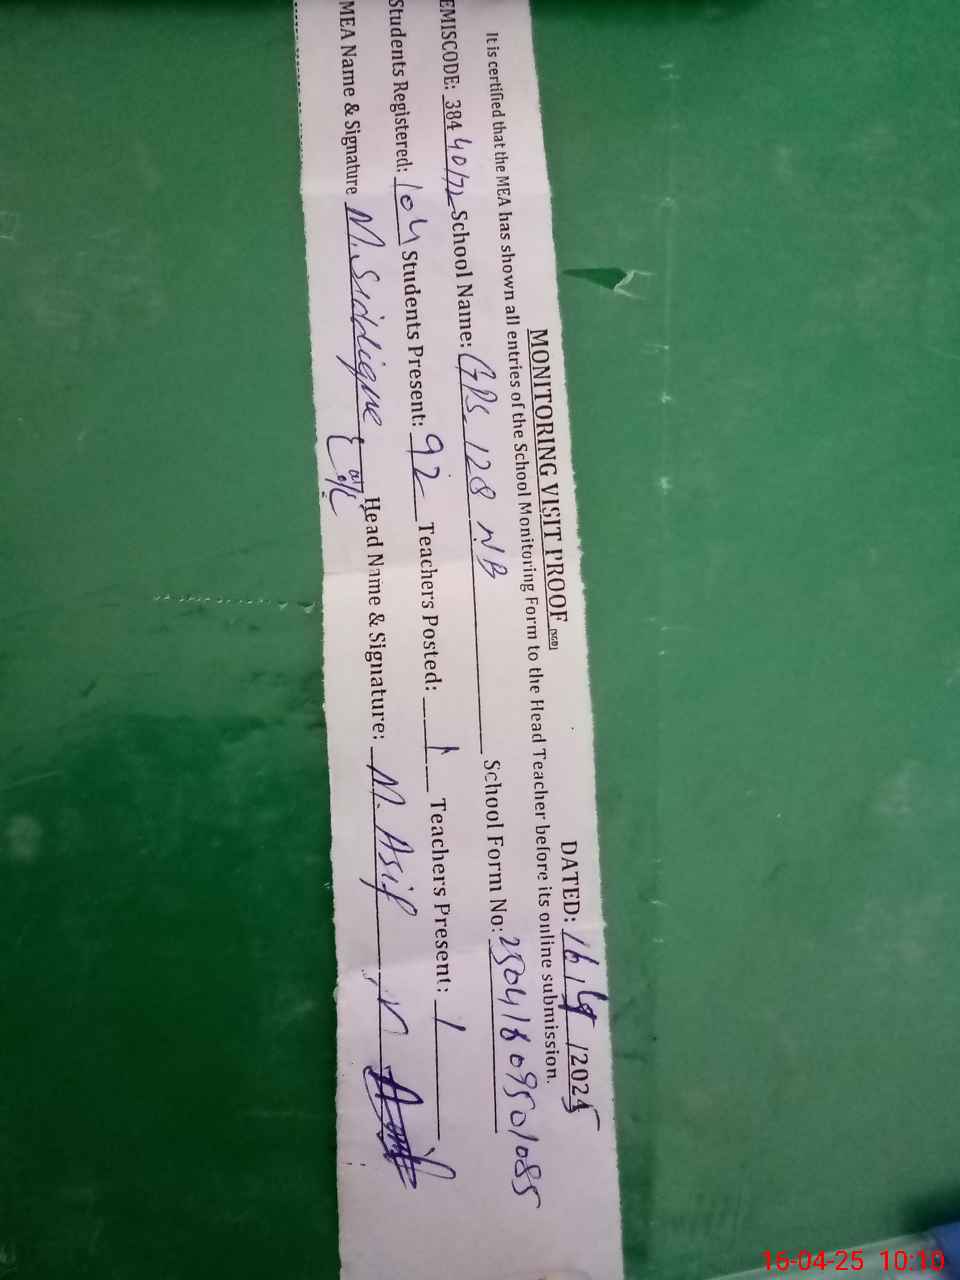 MONITORING VISIT PROOF (SGD) DATED: 16/4/2025
It is certified that the MEA has shown all entries of the School Monitoring Form to the Head Teacher before its online submission.
EMISCODE: 38440172 School Name: GPS 128 NB School Form No: 25041609501085
Students Registered: 104 Students Present: 92 Teachers Posted: 1 Teachers Present: 1
MEA Name & Signature M. Siddique Head Name & Signature: M. Asif
16-04-25 10:10